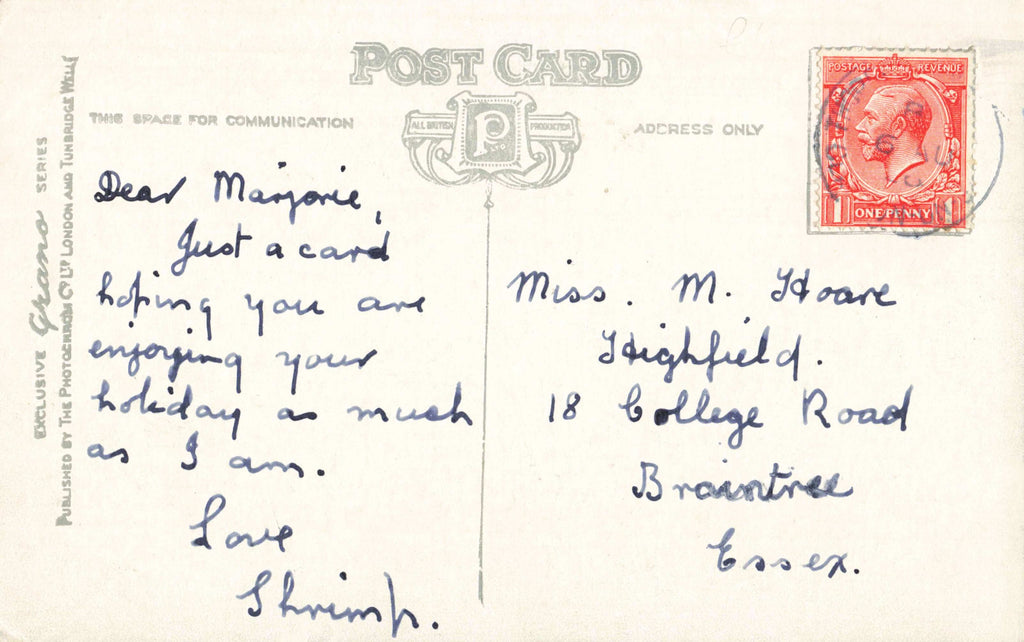 POST CARD
THIS SPACE FOR COMMUNICATION
ALL BRITISH
P
PRODUCTION
ADDRESS ONLY
POSTAGE REVENUE
1 ONE PENNY 1
EXCLUSIVE Grano SERIES
PUBLISHED BY THE PHOTOCHROM CO LTD LONDON AND TUNBRIDGE WELLS
Dear Marjorie,
Just a card
hoping you are
enjoying your
holiday as much
as I am.
Love
Shrimp.
Miss. M. Hoare
Highfield.
18 College Road
Braintree
Essex.